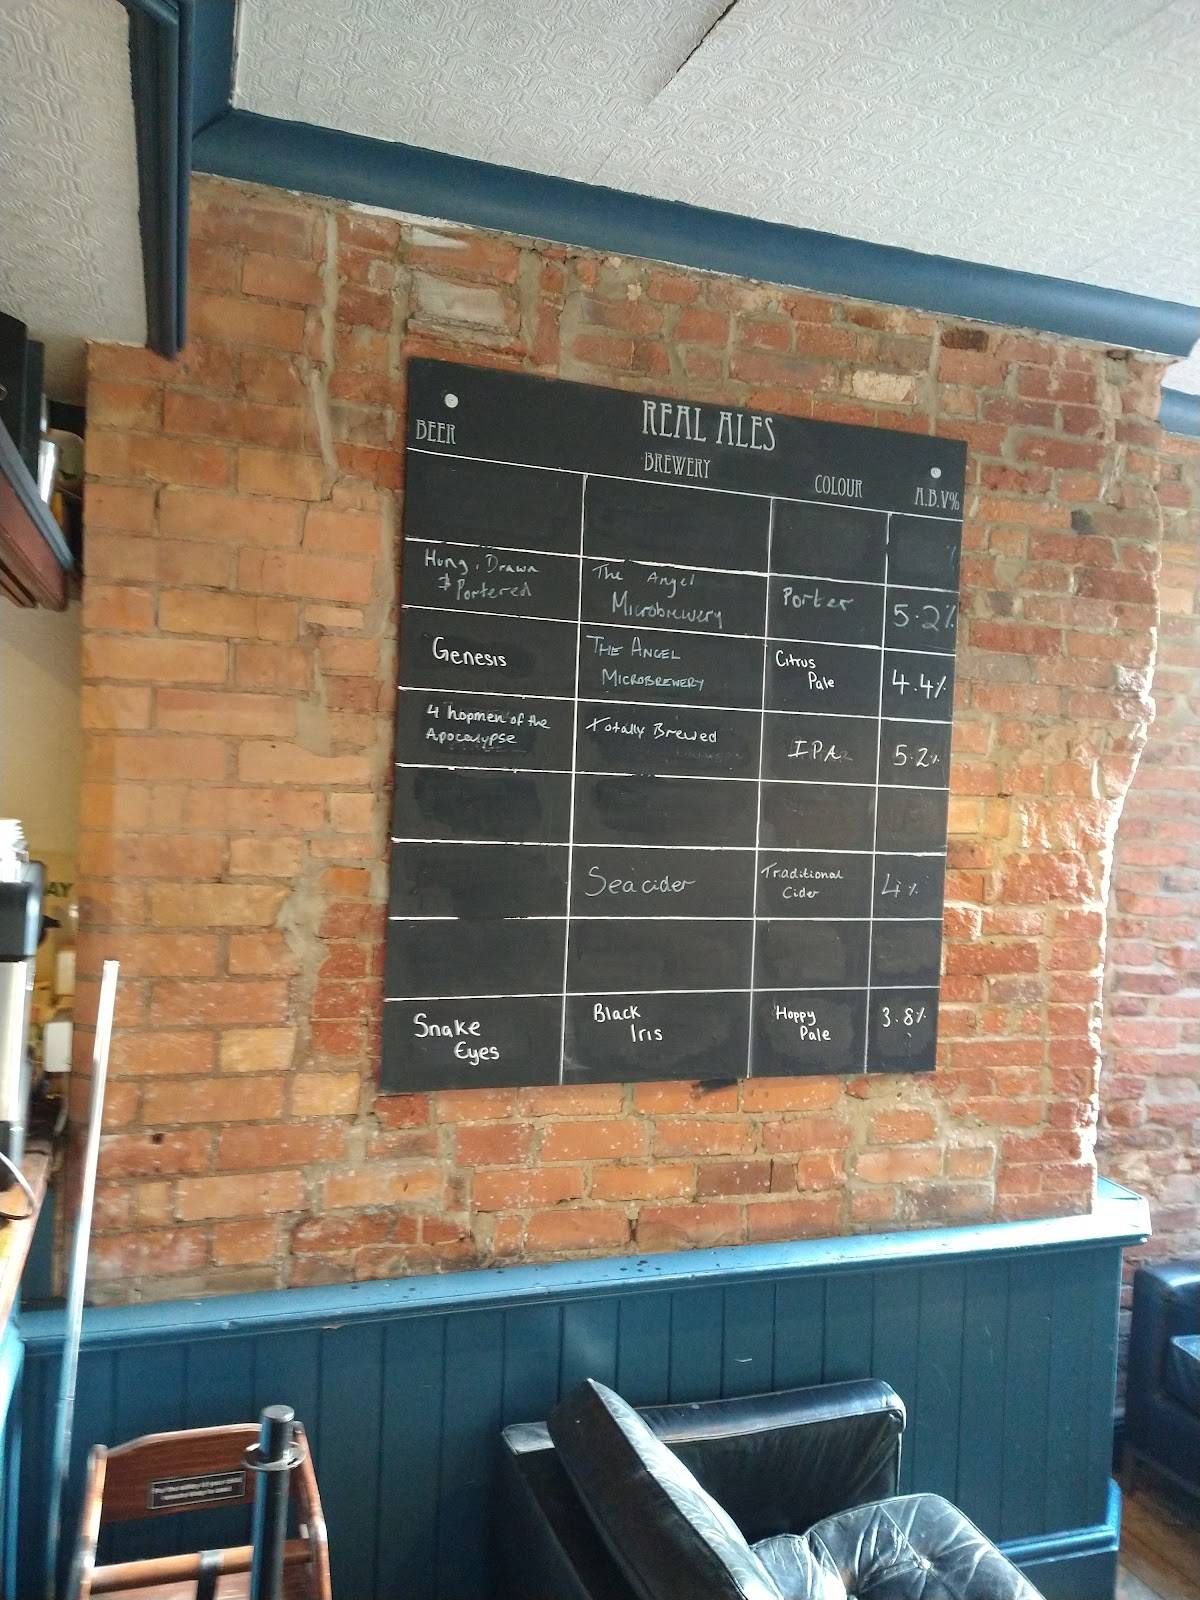 REAL ALES
BEER
BREWERY
COLOUR
A.B.V%
%
Hung, Drawn
& Portered
The Angel
Microbrewery
Porter
5.2%
Genesis
THE ANGEL
MICROBREWERY
Citrus
Pale
4.4%
4 hopmen of the
Apocalypse
Totally Brewed
IPA
5.2%
Seacider
Traditional
Cider
4%
Snake
Eyes
Black
Iris
Hoppy
Pale
3.8%
AY